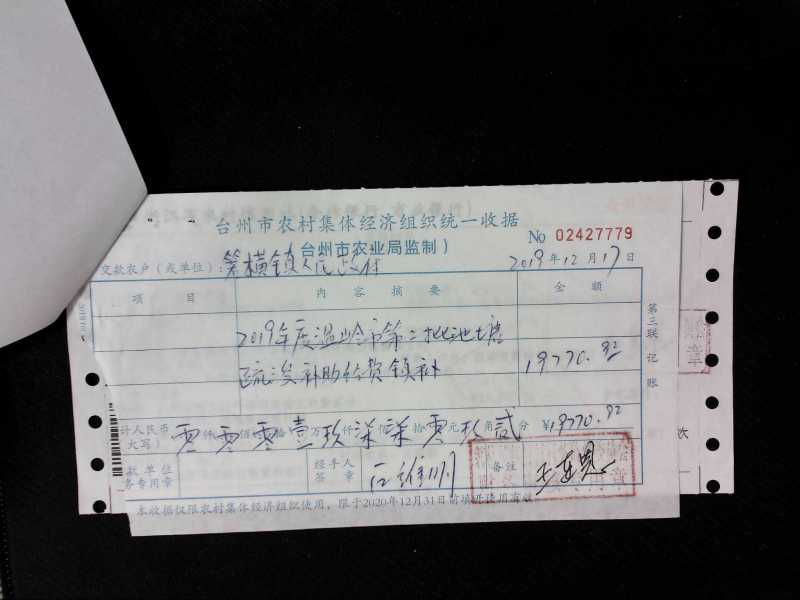 台州市农村集体经济组织统一收据
台州市农业局监制)
No 02427779
交款农户(或单位):箬横镇人民政府
2019年12月17日
项 目 内 容 摘 要 金 额
2019年度温岭市第二批池塘
疏浚补助经费镇补 19770.92
计人民币
(大写) 零仟零佰零拾壹万玖仟柒佰柒拾零元玖角贰分 ¥19770.92
款单位
务专用章
经手人
签章
备注
第三联 记账
本收据仅限农村集体经济组织使用,限于2020年12月31日前填开使用有效